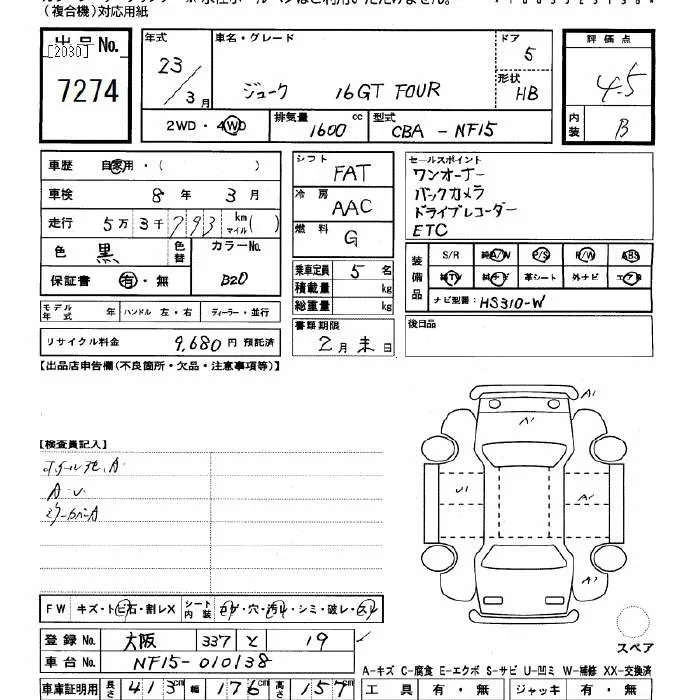 (複合機)対応用紙
出品No.
[2030]
7274
年式
23/3月
車名・グレード
ジューク 16GT FOUR
ドア
5
形状
HB
2WD・4WD
排気量
1600cc
型式
CBA-NF15
評価点
4.5
内装
B
車歴 自家用・( )
車検 8年3月
走行 5万3千793 km マイル( )
色 黒
色替
カラーNo.
B20
保証書 有・無
モデル年式 年
ハンドル 左・右
ディーラー・並行
リサイクル料金 9,680円 預託済
シフト
FAT
冷房
AAC
燃料
G
乗車定員 5名
積載量 kg
総重量 kg
書類期限
2月末日
セールスポイント
ワンオーナー
バックカメラ
ドライブレコーダー
ETC
装備品
S/R 純A/W P/S P/W ABS
純TV 純ナビ 革シート 外ナビ エアB
ナビ型番: HS310-W
後日品
【出品店申告欄(不良箇所・欠品・注意事項等)】
【検査員記入】
A・U
ミラーカバーA
A1
A1
U1
A1
FW キズ・トビ石・割レX
シート内装 コゲ・穴・汚レ・シミ・破レ・スレ
登録No. 大阪 337 と 19
車台No. NF15-010138
車庫証明用 長さ 413cm 幅 176cm 高さ 157cm
スペア
A-キズ C-腐食 E-エクボ S-サビ U-凹ミ W-補修 XX-交換済
工具 有・無 ジャッキ 有・無